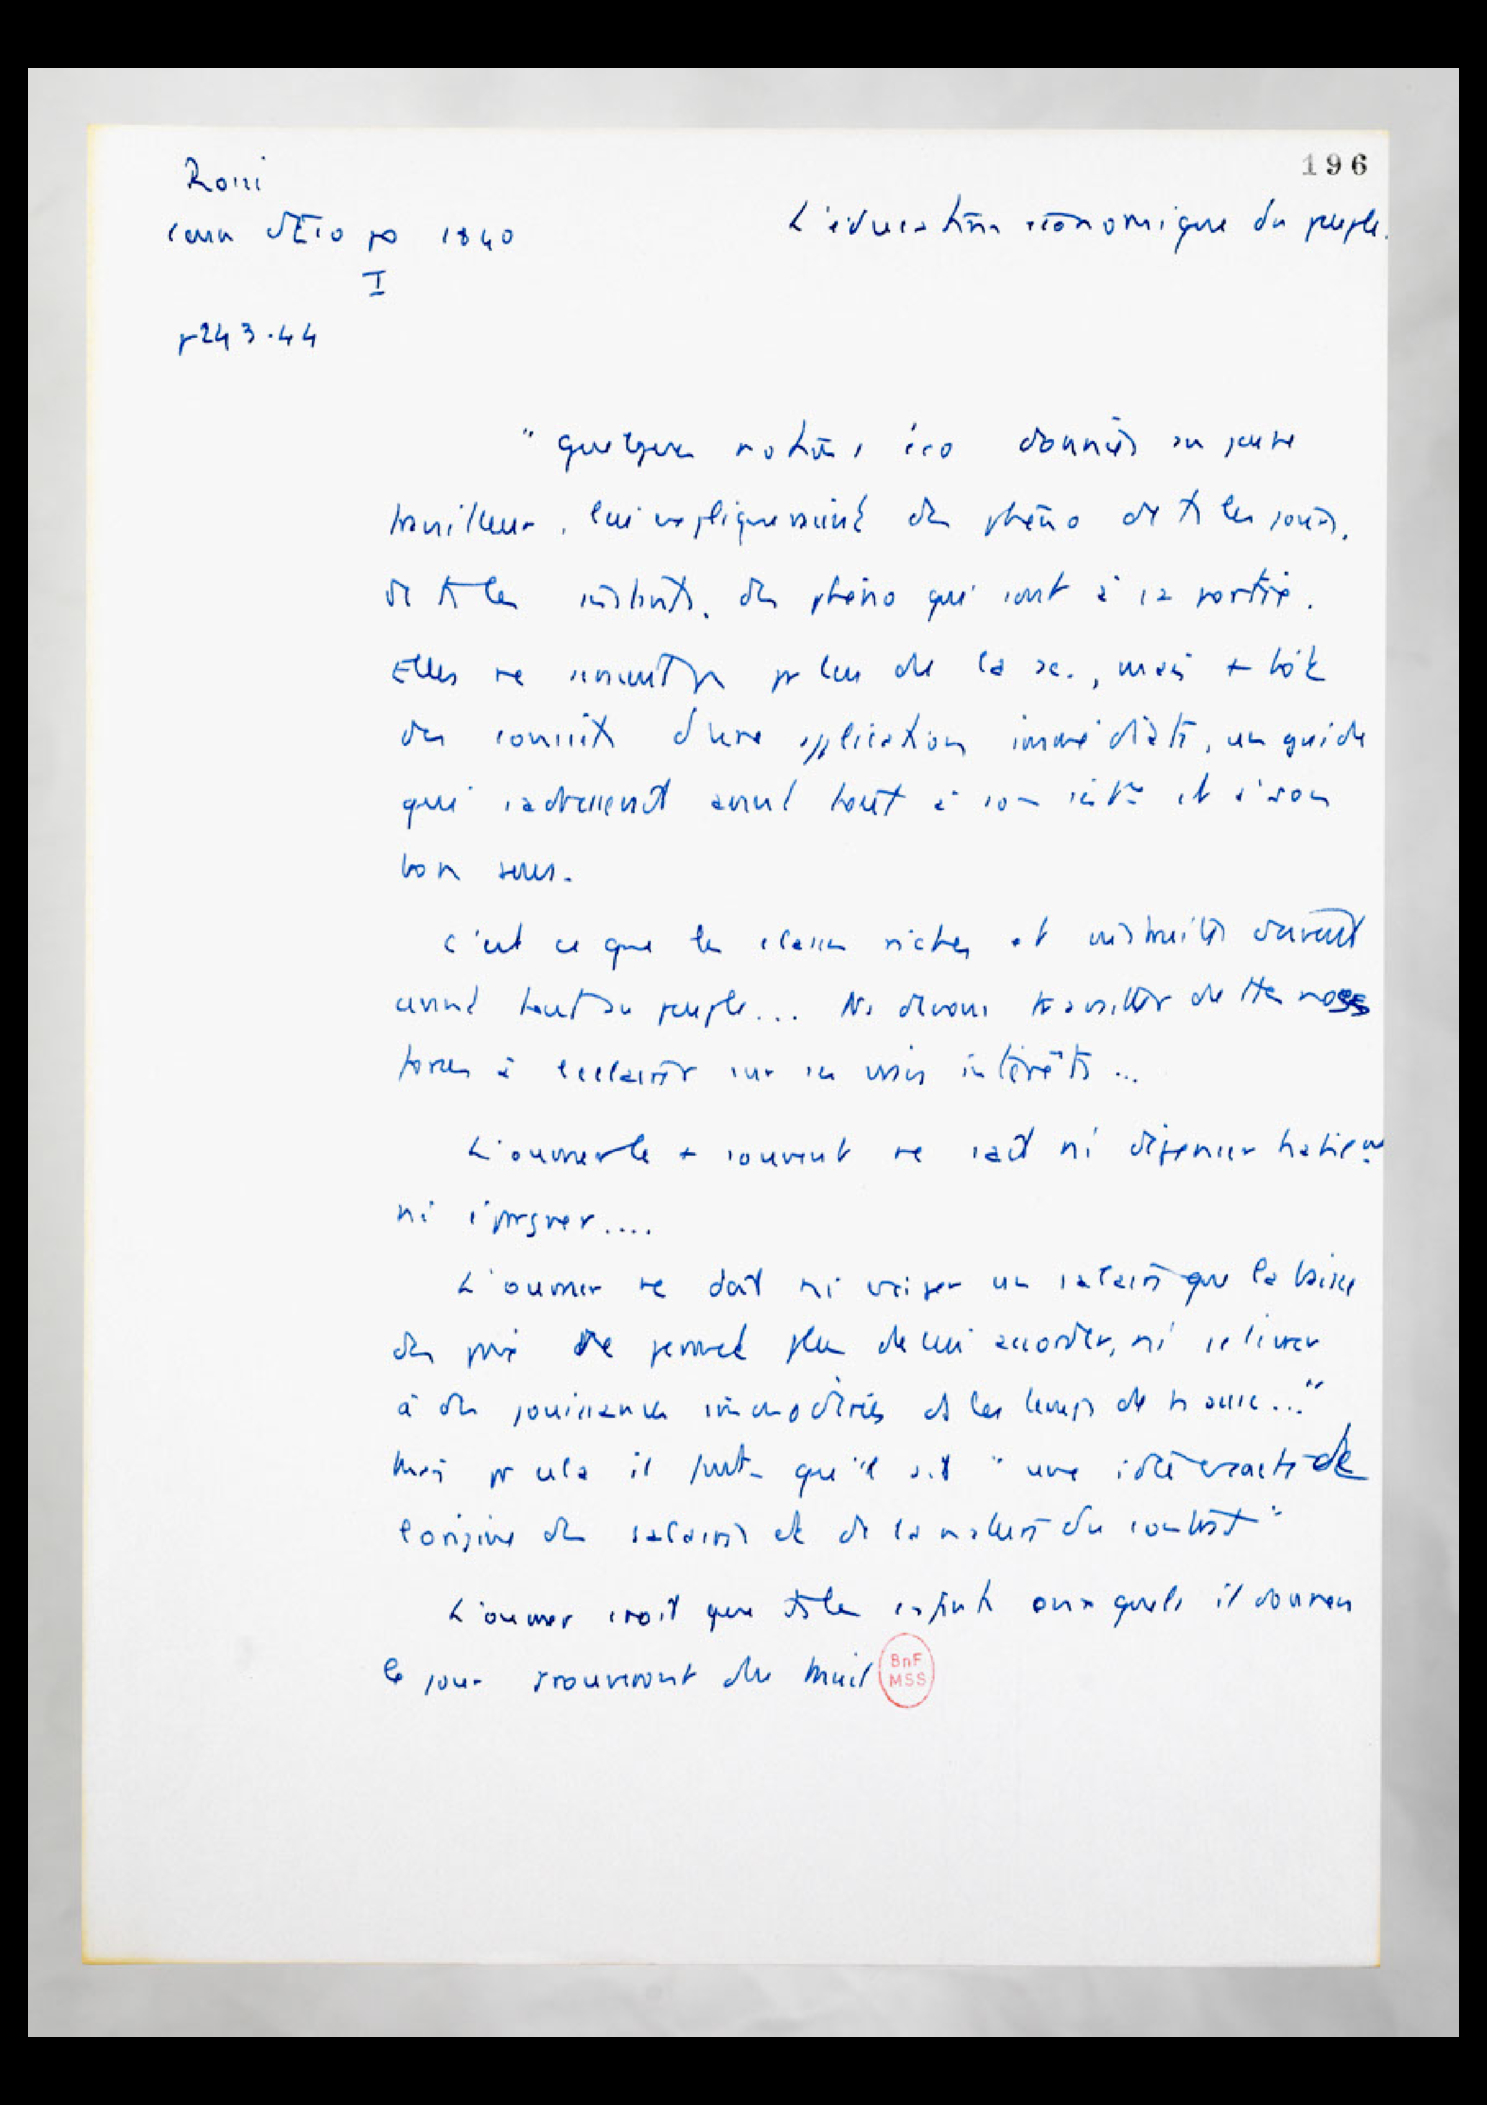 196
Rossi
cours d'Éco po 1840
I
p 243.44
L'éducation économique du peuple.
" quelques notions éco données au jeune
travailleur, lui expliqueraient des phéno de ts les jours,
de ts les instants, des phéno qui sont à sa portée.
Elles ne seraient pas pr lui de la sc., mais + tôt
des conseils d'une application immédiate, un guide
qui s'adresserait avant tout à son intérêt et à son
bon sens.
C'est ce que les classes riches et instruites doivent
avant tout au peuple... Ns devons travailler de ttes nos
forces à l'éclairer sur ses vrais intérêts...
L'ouvrier le + souvent ne sait ni dépenser
ni épargner....
L'ouvrier ne doit ni exiger un salaire que la baisse
des prix ne permet plus de lui accorder, ni se livrer
à des jouissances immodérées ds les temps de hausse..."
Mais pr cela il faut qu'il ait " une idée exacte de
l'origine des salaires et de la nature du contrat"
L'ouvrier croit que ts les enfants auxquels il donnera
le jour trouveront du travail
BnF
MSS